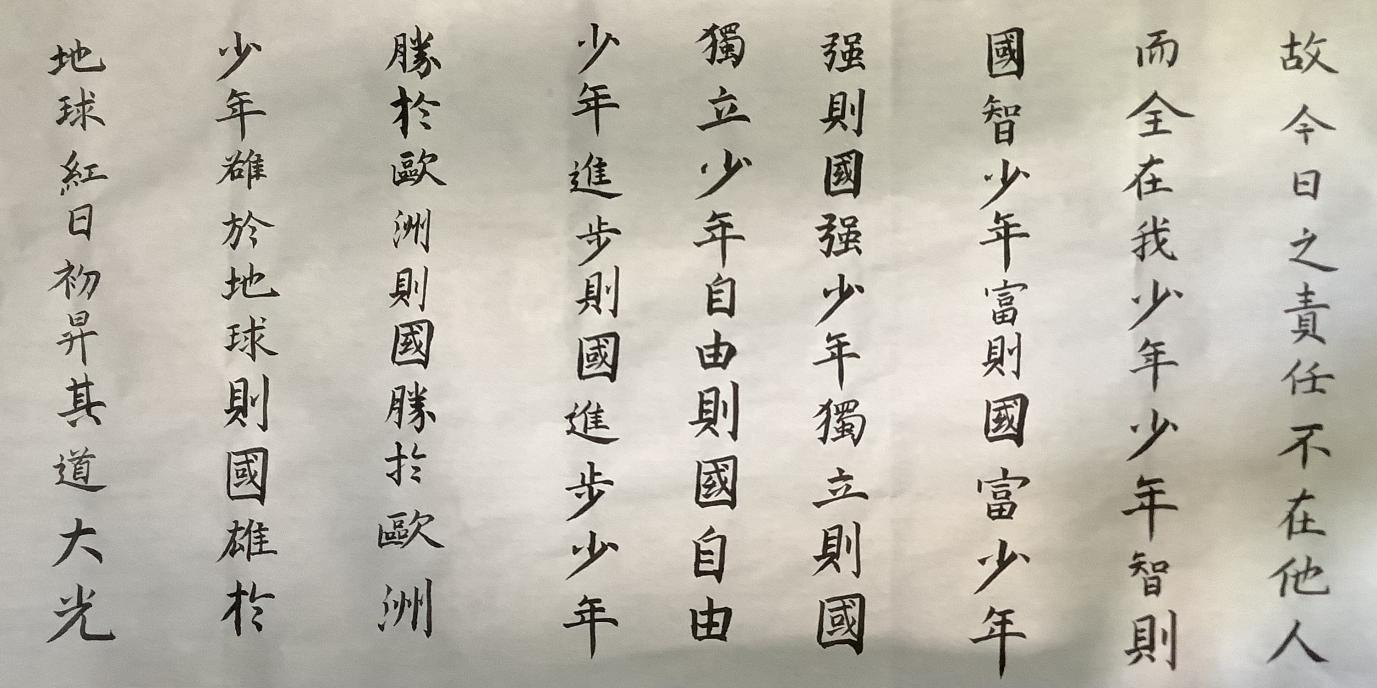 故今日之責任不在他人
而全在我少年少年智則
國智少年富則國富少年
强則國强少年獨立則國
獨立少年自由則國自由
少年進步則國進步少年
勝於歐洲則國勝於歐洲
少年雄於地球則國雄於
地球紅日初昇其道大光